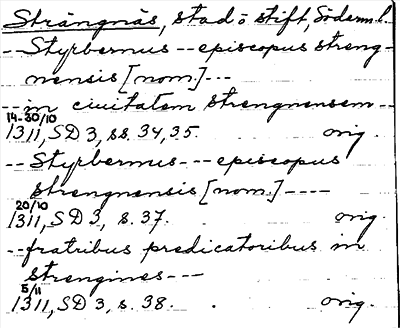 Strängnäs, stad o stift, Söderm. l.
-- Styrbernus -- episcopus streng-
nensis [nom.] ---
-- in ciuitatem strengnensem --
14-30/10
1311, SD 3, ss. 34, 35. orig.
-- Styrbernus -- episcopus
strengnensis [nom.] ----
20/10
1311, SD 3, s. 37. orig.
-- fratribus predicatoribus in
strengines ---
5/11
1311, SD 3, s. 38. orig.